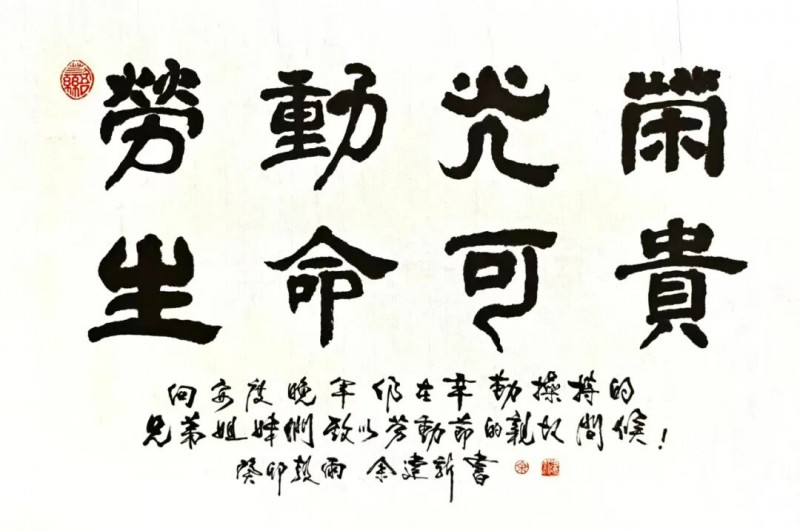 勞動光荣
生命可貴
向安度晚年仍在辛勤操持的
兄弟姐妹們致以劳動節的親切問候！
癸卯穀雨 余建新書